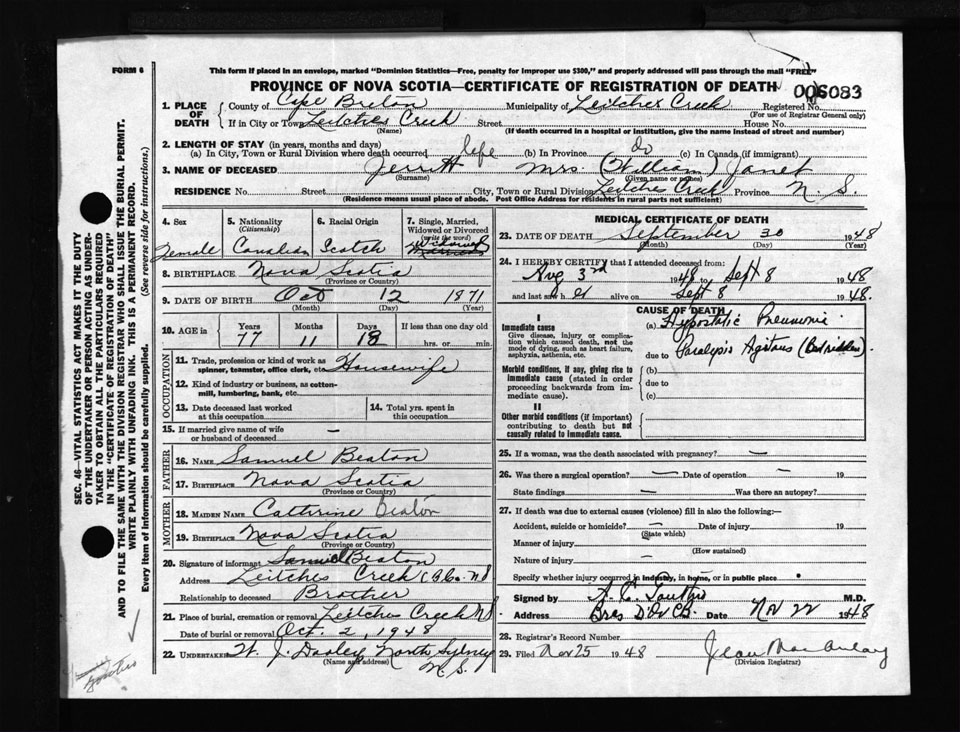 FORM 6
This form if placed in an envelope, marked "Dominion Statistics—Free, penalty for improper use $300," and properly addressed will pass through the mail "FREE"
PROVINCE OF NOVA SCOTIA—CERTIFICATE OF REGISTRATION OF DEATH
006083
1. PLACE OF DEATH
County of Cape Breton Municipality of Leitches Creek Registered No.
(For use of Registrar General only)
If in City or Town Leitches Creek Street House No.
(Name) (If death occurred in a hospital or institution, give the name instead of street and number)
2. LENGTH OF STAY (in years, months and days)
(a) In City, Town or Rural Division where death occurred life (b) In Province do (c) In Canada (if immigrant)
3. NAME OF DECEASED Jerritt Mrs. (William) Janet
(Surname) (Given name or names)
RESIDENCE No. Street City, Town or Rural Division Leitches Creek Province N. S.
(Residence means usual place of abode. Post Office Address for residents in rural parts not sufficient)
4. Sex Female
5. Nationality (Citizenship) Canadian
6. Racial Origin Scotch
7. Single, Married, Widowed or Divorced (write the word) Widowed
8. BIRTHPLACE Nova Scotia
(Province or Country)
9. DATE OF BIRTH Oct 12 1871
(Month) (Day) (Year)
10. AGE in Years 77 Months 11 Days 18 If less than one day old hrs. or min.
OCCUPATION
11. Trade, profession or kind of work as spinner, teamster, office clerk, etc. Housewife
12. Kind of industry or business, as cotton-mill, lumbering, bank, etc.
13. Date deceased last worked at this occupation
14. Total yrs. spent in this occupation
15. If married give name of wife or husband of deceased —
FATHER
16. NAME Samuel Beaton
17. BIRTHPLACE Nova Scotia
(Province or Country)
MOTHER
18. MAIDEN NAME Catherine Beaton
19. BIRTHPLACE Nova Scotia
(Province or Country)
20. Signature of informant Samuel Beaton
Address Leitches Creek
Relationship to deceased Brother
21. Place of burial, cremation or removal Leitches Creek NS.
Date of burial or removal Oct. 2, 1948
22. UNDERTAKER W. J. Dooley North Sydney N.S.
(Name and address)
MEDICAL CERTIFICATE OF DEATH
23. DATE OF DEATH September 30 1948
(Month) (Day) (Year)
24. I HEREBY CERTIFY that I attended deceased from:
Aug 3rd 1948 to Sept 8 1948
and last saw her alive on Sept 8 1948.
CAUSE OF DEATH
I
Immediate cause
Give disease, injury or complication which caused death, not the mode of dying, such as heart failure, asphyxia, asthenia, etc.
(a) Hypostatic Pneumonia
due to Paralysis Agitans (Bedridden).
Morbid conditions, if any, giving rise to immediate cause (stated in order proceeding backwards from immediate cause).
(b)
due to
(c)
II
Other morbid conditions (if important) contributing to death but not causally related to immediate cause.
25. If a woman, was the death associated with pregnancy? —
26. Was there a surgical operation? — Date of operation — 19
State findings — Was there an autopsy?
27. If death was due to external causes (violence) fill in also the following:—
Accident, suicide or homicide? — Date of injury 19
(State which)
Manner of injury
(How sustained)
Nature of injury —
Specify whether injury occurred in industry, in home, or in public place
Signed by M.D.
Address Bras D'Or CB. Date Nov 22 1948
28. Registrar's Record Number
29. Filed Nov 25 1948 Jean MacAulay
(Division Registrar)
SEC. 46—VITAL STATISTICS ACT MAKES IT THE DUTY
OF THE UNDERTAKER OR PERSON ACTING AS UNDER-
TAKER TO OBTAIN ALL THE PARTICULARS REQUIRED
IN THE "CERTIFICATE OF REGISTRATION OF DEATH"
AND TO FILE THE SAME WITH THE DIVISION REGISTRAR WHO SHALL ISSUE THE BURIAL PERMIT.
WRITE PLAINLY WITH UNFADING INK. THIS IS A PERMANENT RECORD.
Every item of information should be carefully supplied. (See reverse side for instructions.)